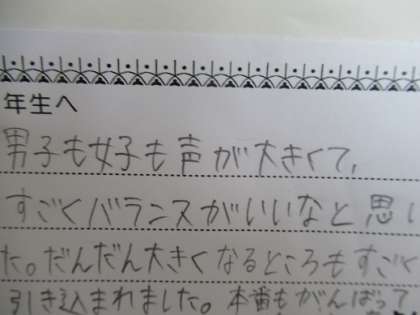 年生へ
男子も女子も声が大きくて、
すごくバランスがいいなと思い
た。だんだん大きくなるところもすごく
引き込まれました。本番もがんばって